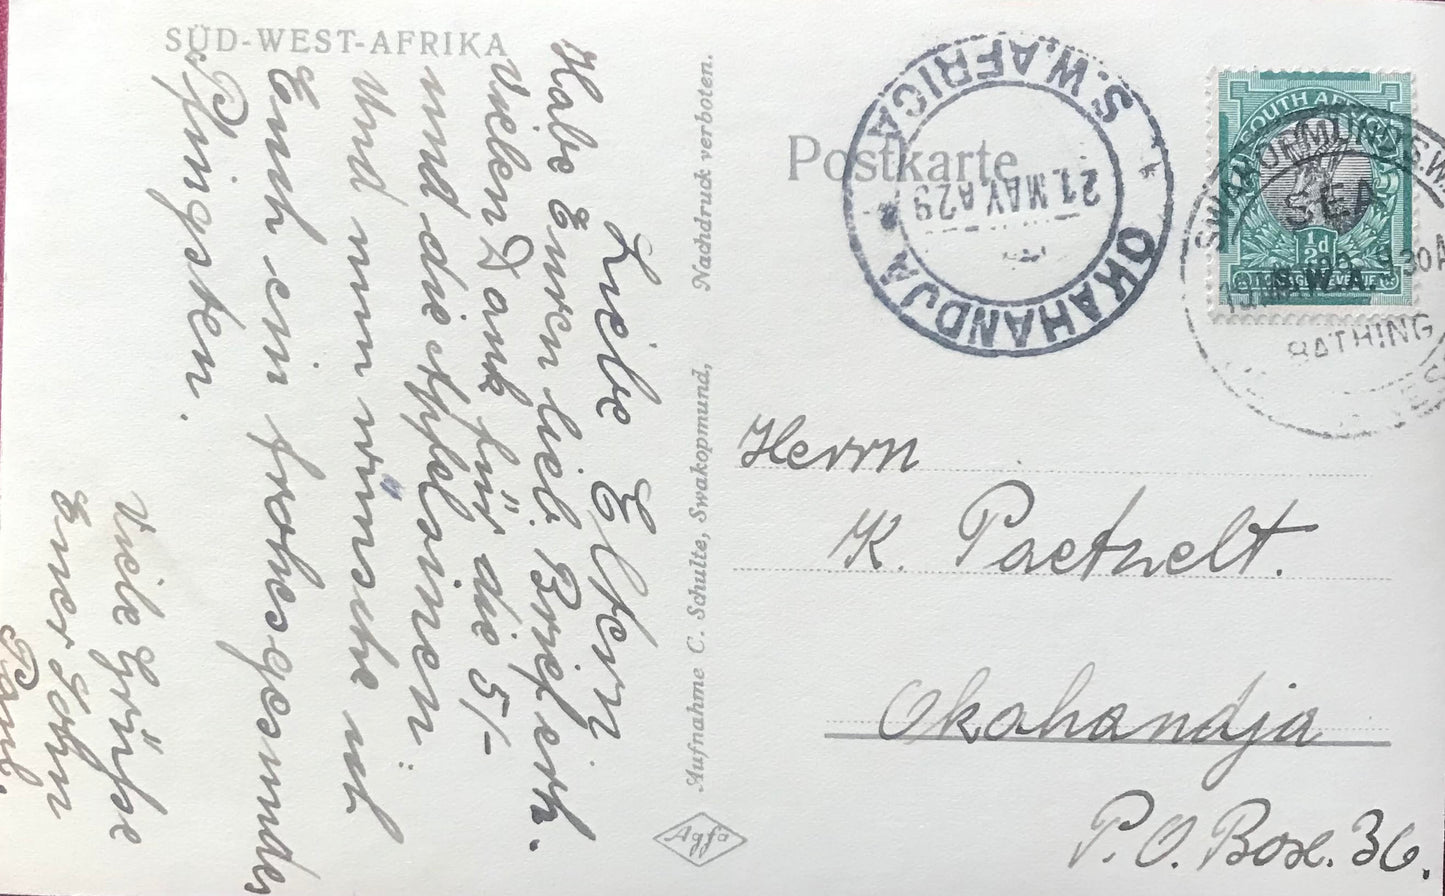 SÜD-WEST-AFRIKA
Liebe Eltern
Habe Euren lieb. Brief erh.
vielen Dank für die 5/-
und die Apfelsinen.
Und nun wünsche ich
Euch ein frohes gesundes
Pfingsten.
Viele Grüße
Euer Sohn
Paul.
Aufnahme C. Schulte, Swakopmund, Nachdruck verboten.
Agfa
Postkarte
OKAHANDJA
S.W. AFRICA
21 MAY A29
SOUTH AFRICA
½d
S.W.A.
SWAKOPMUND S.W.A.
SEA
BATHING
Herrn
K. Paetzelt.
Okahandja
P.O. Box. 36.